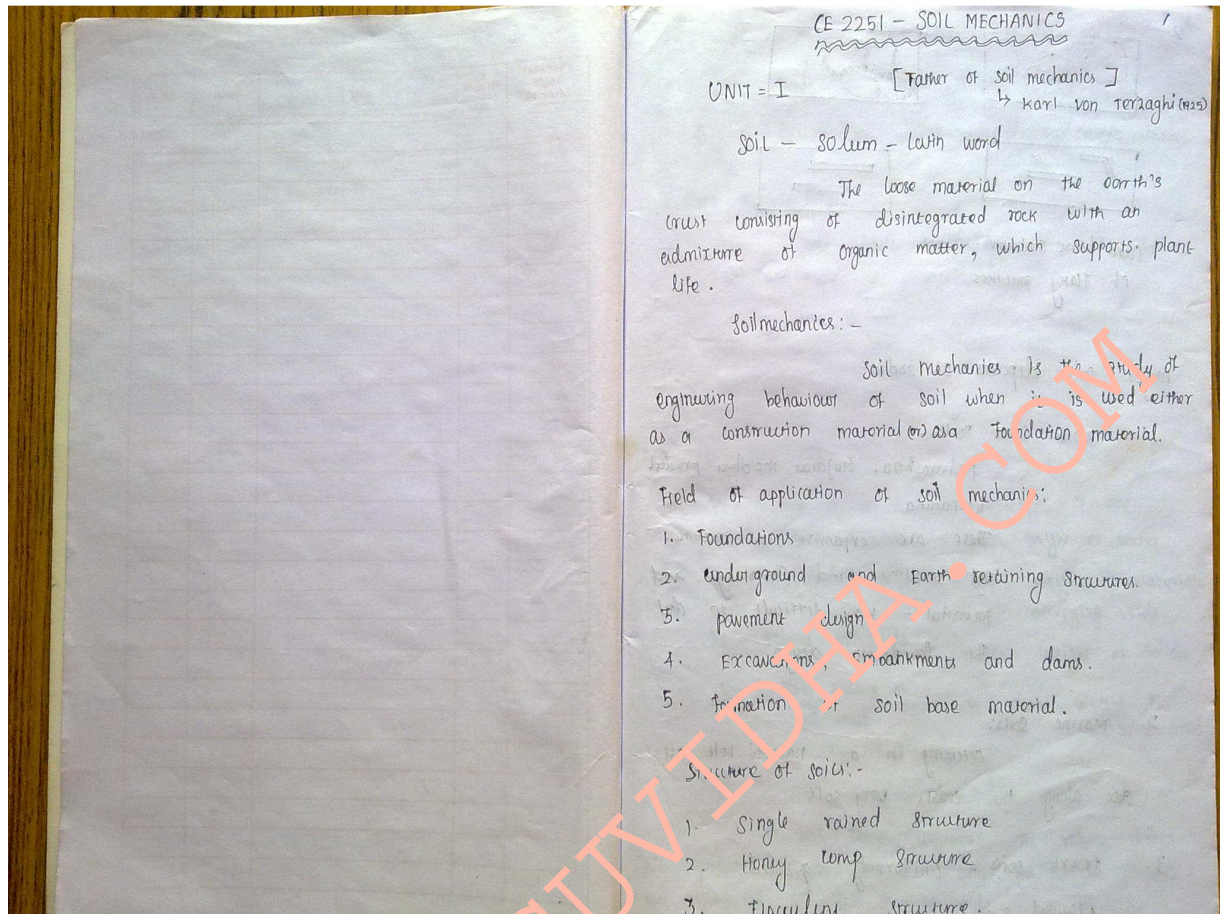 CE 2251 - SOIL MECHANICS
1
UNIT = I
[Father of soil mechanics]
↳ Karl Von Terzaghi (1925)
Soil - Solum - Latin word
The loose material on the earth's
crust consisting of disintegrated rock with an
admixture of organic matter, which supports plant
life.
Soil mechanics: -
Soil mechanics is the study of
engineering behaviour of soil when it is used either
as a construction material (or) as a Foundation material.
Field of application of soil mechanics:
1. Foundations
2. underground and Earth retaining structures.
3. pavement design
4. Excavations, Embankments and dams.
5. Formation of soil base material.
Structure of soils:-
1. Single rained structure
2. Honey comp structure
3. Flocculent structure.
CUVIDHA.COM